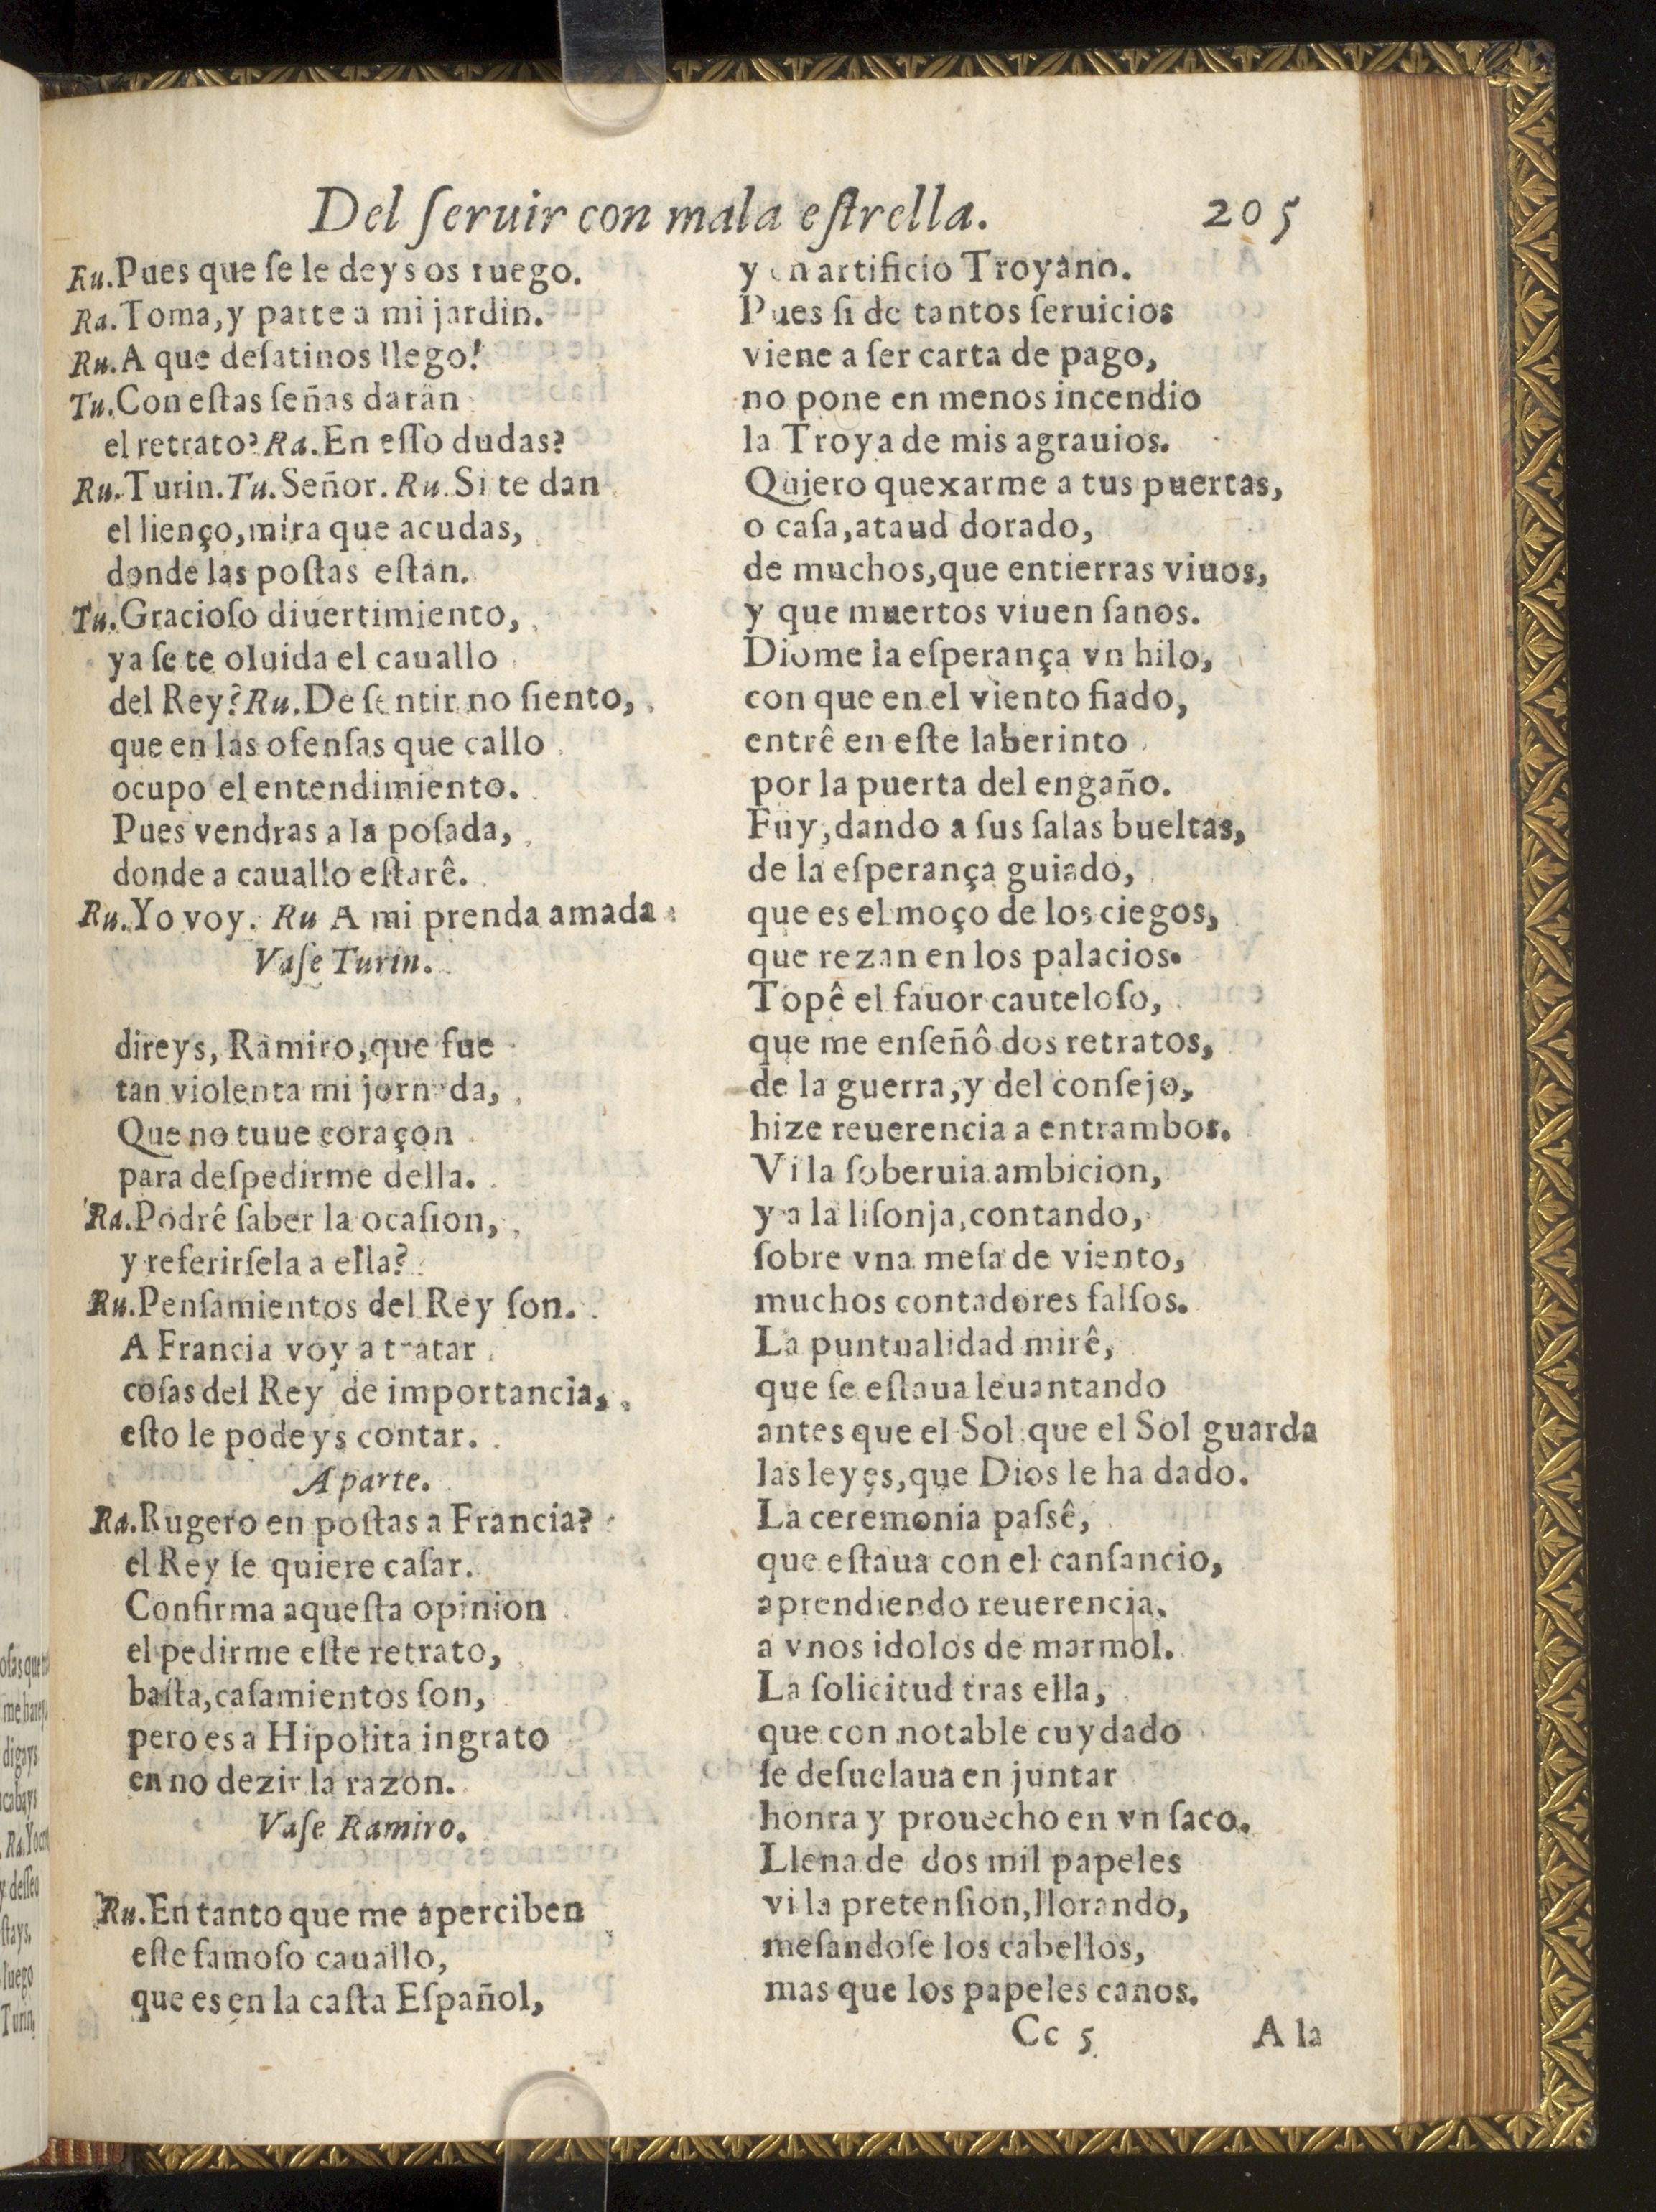 Del ſeruir con mala eſtrella. 205
Ru. Pues que ſe le deys os ruego.
Ra. Toma, y parte a mi jardin.
Ru. A que deſatinos llego!
Tu. Con eſtas ſeñas darân
el retrato? Ra. En eſſo dudas?
Ru. Turin. Tu. Señor. Ru. Si te dan
el lienço, mira que acudas,
donde las poſtas eſtan.
Tu. Gracioſo diuertimiento,
ya ſe te oluida el cauallo
del Rey? Ru. De ſentir no ſiento,
que en las ofenſas que callo
ocupo el entendimiento.
Pues vendras a la poſada,
donde a cauallo eſtarê.
Ru. Yo voy. Ru A mi prenda amada
Vaſe Turin.
direys, Ramiro, que fue
tan violenta mi jornada,
Que no tuue coraçon
para deſpedirme della.
Ra. Podrê ſaber la ocaſion,
y referirſela a ella?
Ru. Penſamientos del Rey ſon.
A Francia voy a tratar
coſas del Rey de importancia,
eſto le podeys contar.
Aparte.
Ra. Rugero en poſtas a Francia?
el Rey ſe quiere caſar.
Confirma aqueſta opinion
el pedirme eſte retrato,
baſta, caſamientos ſon,
pero es a Hipolita ingrato
en no dezir la razon.
Vaſe Ramiro.
Ru. En tanto que me aperciben
eſte famoſo cauallo,
que es en la caſta Eſpañol,
y en artificio Troyano.
Pues ſi de tantos ſeruicios
viene a ſer carta de pago,
no pone en menos incendio
la Troya de mis agrauios.
Quiero quexarme a tus puertas,
o caſa, ataud dorado,
de muchos, que entierras viuos,
y que muertos viuen ſanos.
Diome la eſperança vn hilo,
con que en el viento fiado,
entrê en eſte laberinto
por la puerta del engaño.
Fuy, dando a ſus ſalas bueltas,
de la eſperança guiado,
que es el moço de los ciegos,
que rezan en los palacios.
Topê el fauor cauteloſo,
que me enſeñô dos retratos,
de la guerra, y del conſejo,
hize reuerencia a entrambos.
Vi la ſoberuia ambicion,
y a la liſonja, contando,
ſobre vna meſa de viento,
muchos contadores falſos.
La puntualidad mirê,
que ſe eſtaua leuantando
antes que el Sol que el Sol guarda
las leyes, que Dios le ha dado.
La ceremonia paſsê,
que eſtaua con el canſancio,
aprendiendo reuerencia,
a vnos idolos de marmol.
La ſolicitud tras ella,
que con notable cuydado
ſe deſuelaua en juntar
honra y prouecho en vn ſaco.
Llena de dos mil papeles
vi la pretenſion, llorando,
meſandoſe los cabellos,
mas que los papeles canos.
Cc 5 A la